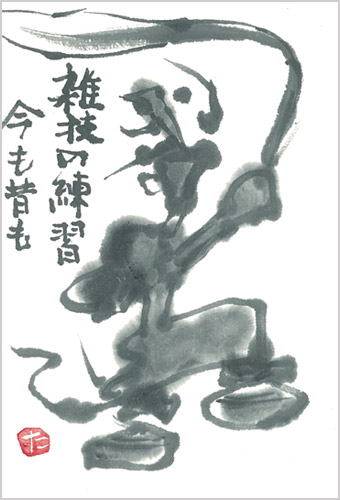 雑技の練習
今も昔も
た